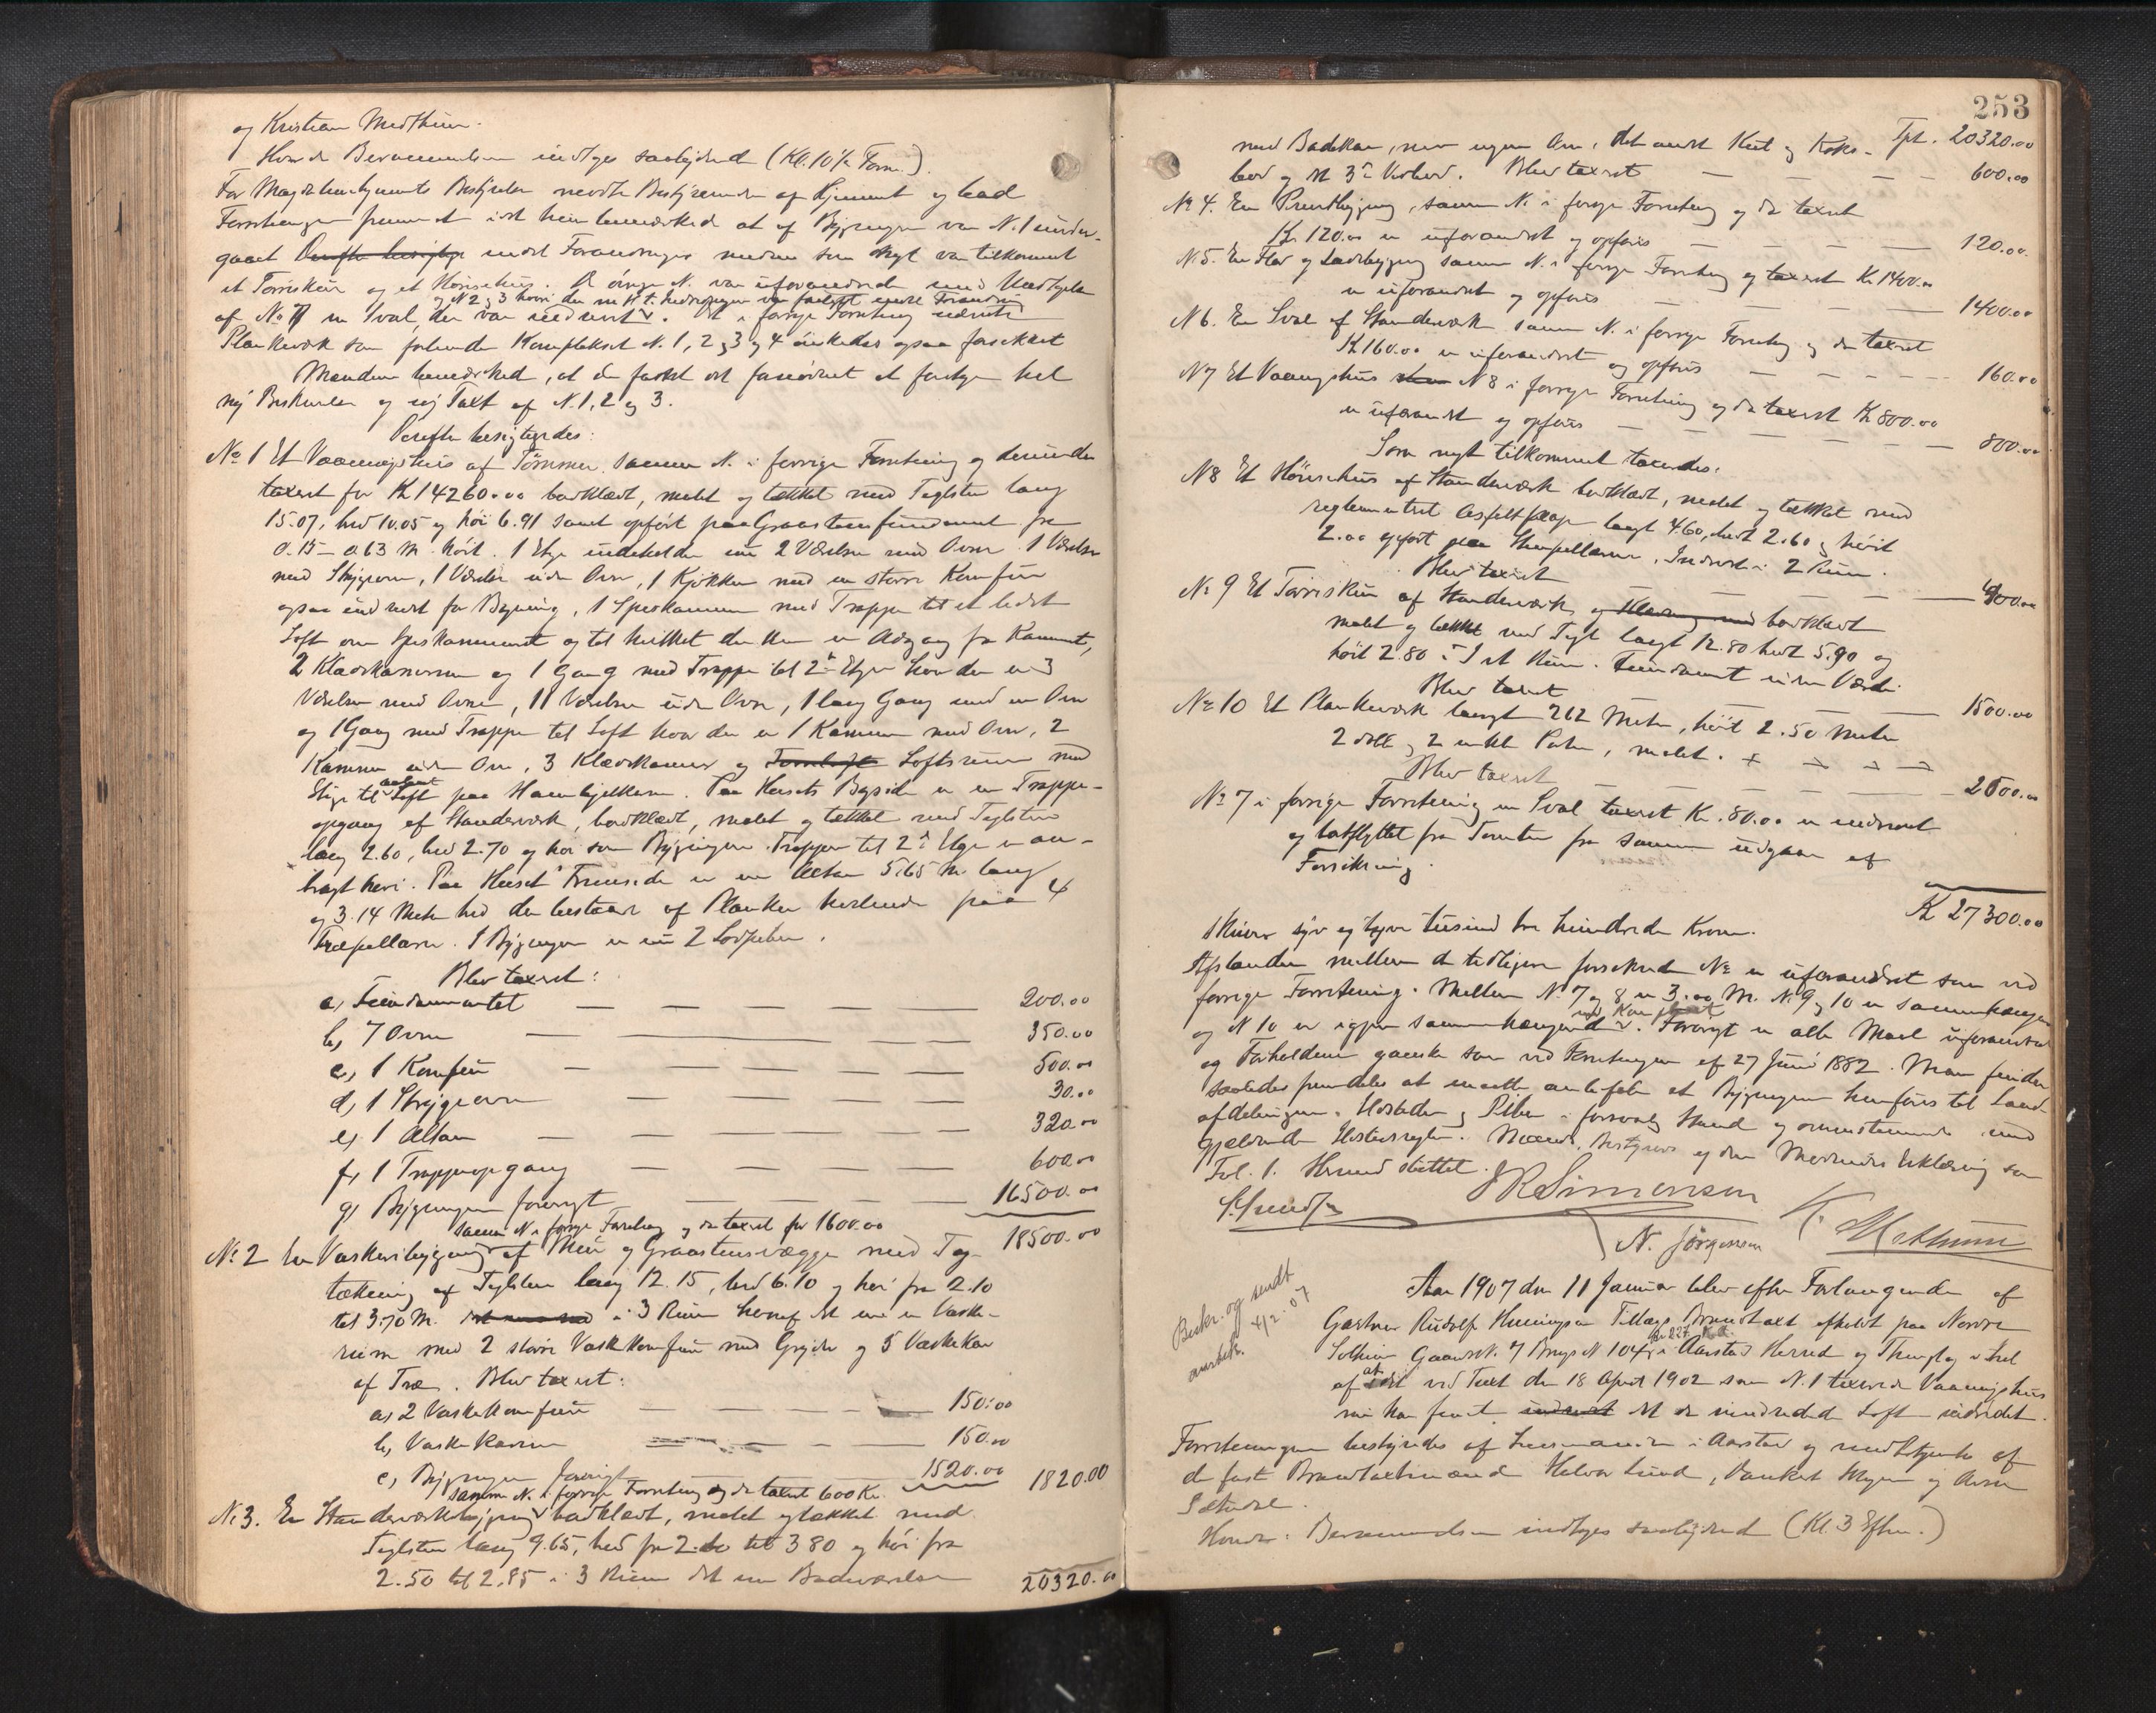 og Kristian Medthun.
Hvorda Berammelsen indtoges saalydend (Kl. 10½ Form.)
For Magdalenehjemmets Bestyrelse mødte Bestyrerinden af Hjemmet og lod
Forretningen fremmet idet hun bemærked at af Bygningen var N. 1 under-
gaaet endel Forandringer medens som Nyt var tilkommet
et Tørreskur og et Hønsehus. De øvrige N. var uforandrede med Undtagelse
og N 2 & 3 hvori der m H t. Indredningen var foregaaet endel Forandring
af No 7 en Sval, der var nedrevet. Det i forrige Forretning nævnte
Plankeværk som forbinder Komplekset N. 1, 2, 3 og 4 ønskedes ogsaa forsikret
Mændene bemærked, at de fandt det fornødent at foretage hel
ny Beskrivelse og ny Taxt af N. 1, 2 og 3.
Derefter besigtigedes:
No 1 Et Vaaningshus af Tømmer samme N. i forrige Forretning og derunder
taxeret for Kr 14260.00 bordklædt, malet og tækket med Teglsten lang
15.07, bred 10.05 og høi 6.91 samt opført paa Graastensfundament fra
0.15 - 0.63 M. høit. 1 Etge indeholder nu 2 Værelser med Ovne 1 Værelse
med Strygeovn, 1 Værelse uden Ovn, 1 Kjøkken med en større Komfur
ogsaa indrettet for Bagning, 1 Spiskammer med Trappe til et lidet
Loft over Spiskammeret og til hvilket der kun er Adgang fra Kammeret,
2 Klædskamre og 1 Gang med Trappe til 2den Etge hvor der er 3
Værelser med Ovne, 11 Værelser uden Ovn, 1 lang Gang med en Ovn
og 1 Gang med Trappe til Loft hvor der er 1 Kammer med Ovn, 2
Kammer uden Ovn, 3 Klædskamre og Loftsrum med
Stige til Loft paa Hanebjelkerne. Paa Husets Bagside er en Trappe-
opgang af Standerværk, bordklædt, malet og tækket med Teglsten
lang 2.60, bred 2.70 og høi som Bygningen. Trappen til 2den Etge er an-
bragt heri. Paa Husets Fremside er en Altan 5.65 M. lang
og 3.14 Meter bred der bestaar af Planker hvilende paa 4
Træpillarer. I Bygningen er nu 2 Lodpiber.
Blev taxeret:
a, Fundamentet — — — — 200.00
b, 7 Ovne — — — — 350.00
c, 1 Komfur — — — — 500.00
d, 1 Strygeovn — — — — 30.00
e, 1 Altan — — — — 320.00
f, 1 Trappeopgang — — — — 600.00
g, Bygningen forøvrigt — — — 16500.00
18500.00
samme N. i forrige Forretning og da taxeret for 1600.00
No 2 En Vaskeribygning af Mur og Graastensvægge med Tag-
tækning af Teglsten lang 12.15, bred 6.10 og høi fra 2.10
til 3.70 M. i 3 Rum hvoraf det ene er Vaske-
rum med 2 større Vaskekomfur med Gryder og 5 Vaskekar
af Træ. Blev taxeret:
a, 2 Vaskekomfur — — — — 150.00
b, Vaskekarrene — — — 150.00
c, Bygningen forøvrigt 1520.00 1820.00
samme N. i forrige Forretning og da taxeret 600 Kr.
No 3. En Standerværksbygning bordklædt, malet og tækket med
Teglsten lang 9.65, bred fra 2.60 til 3.80 og høi fra
2.50 til 2.85 i 3 Rum det ene Badeværelse
20320.00
253
Tpt. 20320.00
med Badekar, men ingen Ovn, det andet Kul og Koks-
bod og det 3die Vedbod. Blev taxeret — — — 600.00
No 4. En Privetbygning, samme N. i forrige Forretning og da taxeret
Kr. 120.00 er uforandret og opføres — — — 120.00
N. 5. En Flor og Ladebygning samme N. i forrige Forretning og taxeret Kr 1400.00
er uforandret og opføres — — — 1400.00
N 6. En Sval af Standerværk samme N. i forrige Forretning og da taxeret
Kr 160.00 er uforandret og opføres — — — 160.00
N 7 Et Vaaningshus N 8 i forrige Forretning og da taxeret Kr 800.00
er uforandret og opføres — — — 800.00
Som nyt tilkommet taxeredes:
N 8 Et Hønsehus af Standerværk bordklædt, malet og tækket med
reglementeret Asfaltpap langt 4.60, bredt 2.60 og høit
2.00 opført paa Stenpillarer. Indredet i 2 Rum.
Blev taxeret — — — 400.00
No 9 Et Tørreskur af Standerværk, bordklædt
malet og tækket med Tegl langt 12.80 bredt 5.90 og
høit 2.80 i 1 et Rum. Fundament uden Værdi.
Blev taxeret — — — 1500.00
No 10 Et Plankeværk langt 212 Meter, høit 2.50 Meter
2 dobb. og 2 enkelt Porte, malet.
Blev taxeret — — — 2000.00
No 7 i forrige Forretning en Sval taxeret Kr. 80.00 er nedrevet
og bortflyttet fra Tomten fra samme udgaar af
Forsikring.
Kr 27300.00
skriver syv og tyve tusind tre hundrede Kroner.
Afstanden mellem de tidligere forsikrede No er uforandret som ved
forrige Forretning. Mellem N. 7 og 8 er 3.00 M. N. 9 og 10 er sammenhængende
og N 10 er igjen sammenhængende med Komplekset. Forøvrigt er alle Maal uforandret
og Forholdene ganske som ved Forretningen af 27 Juni 1882. Man finder
saaledes fremdeles at maatte anbefale at Bygningen henføres til Land-
afdelingen. Ildsteder og Piber i forsvarlig Stand og overensstemmende med
gjældende Ildstedsregler. Mænds, Bestyrers og den Mødendes Erklæring som
Fol. 1. Hermed sluttet.
JR Simonsen
N. Jörgensen
K. Medthunn
Bekr. og sendt
4/2 07
Aar 1907 den 11 Januar blev efter Forlangende af
Gartner Rudolf Henningsen Tillægs Brandtaxt afholdt paa Nordre
Solheim Gaards N. 7 Brugs N 104 i Aarstad Herred og Thinglag i Anl
af at det ved Taxt den 18 April 1902 som N. 1 taxerede Vaaningshus
nu har faaet det da uindredede Loft indredet.
Forretningen bestyredes af Lensmanden i Aarstad og med Hjælp af
de faste Brandtaxtmænd Halvor Lund, Vanket Wegner og Arne
Sætredal.
Hvorda: Berammelsen indtoges saalydend (Kl. 3 Eftm.)